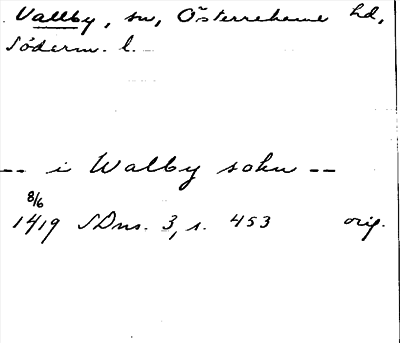 Vallby, sn, Österrekarne hd,
Söderm. l.
-- i Walby sokn --
8/6
1419 SDns. 3, s. 453 orig.